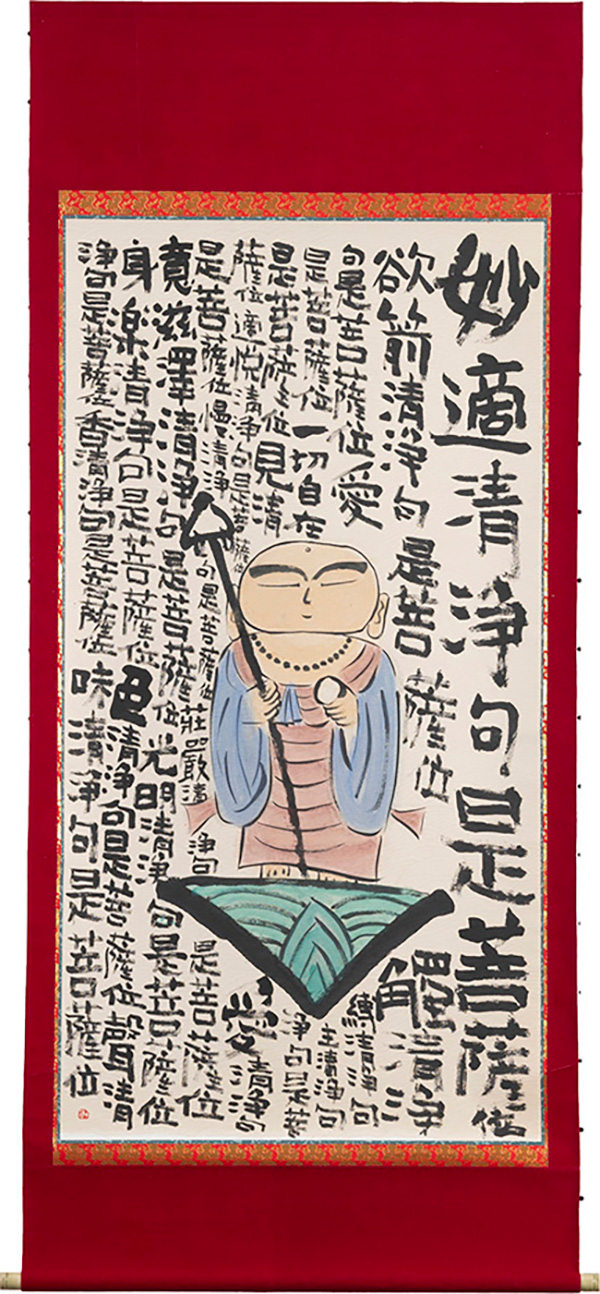 妙適清浄句是菩薩位
欲箭清浄句是菩薩位觸清浄
句是菩薩位愛縛清浄句
是菩薩位一切自在主清浄句
是菩薩位見清浄句是菩
薩位適悦清浄句是菩薩位愛清浄句
是菩薩位慢清浄句是菩薩位荘嚴清浄句是菩薩位
意滋澤清浄句是菩薩位光明清浄句是菩薩位
身楽清浄句是菩薩位色清浄句是菩薩位聲清
浄句是菩薩位香清浄句是菩薩位味清浄句是菩薩位